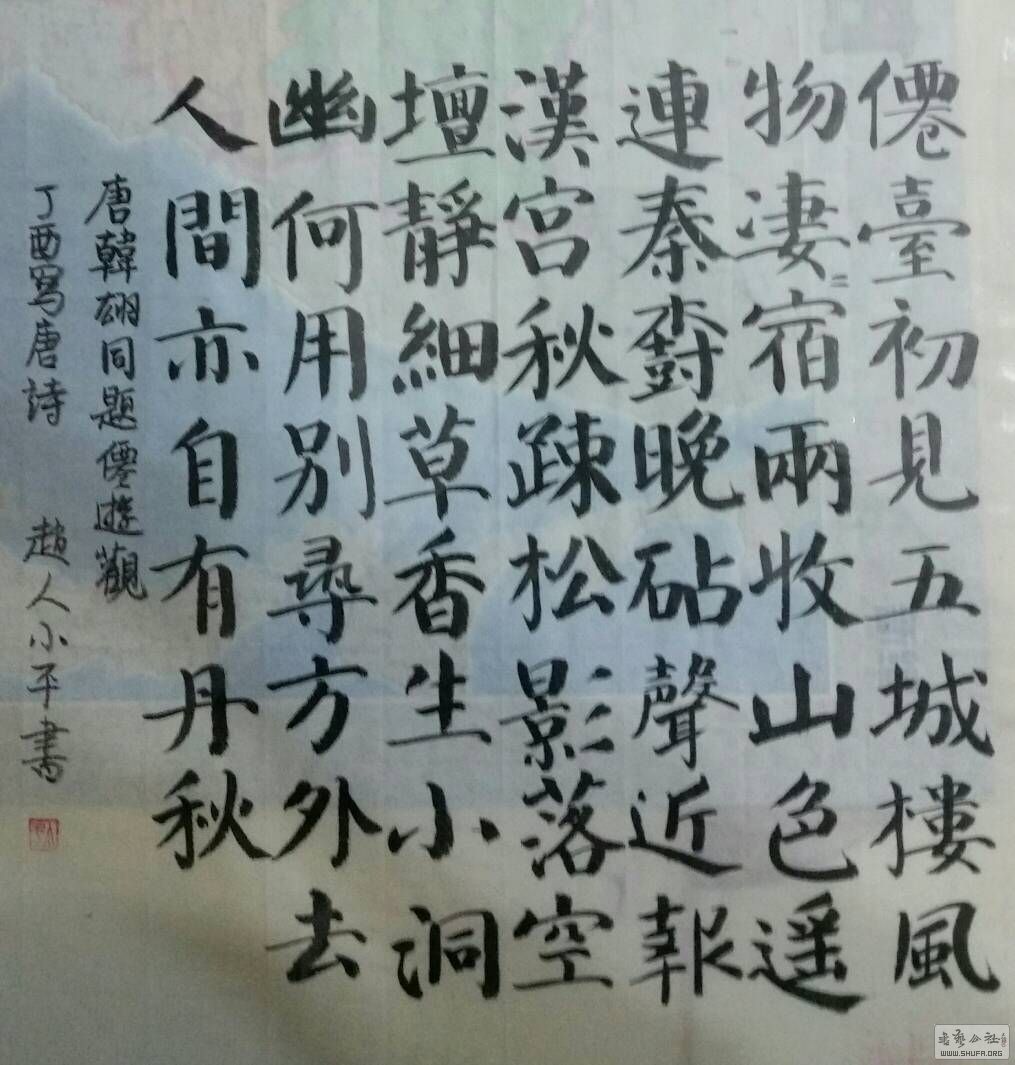 僊臺初見五城樓風
物凄〻宿兩收山色遥
連秦樹晚砧聲近報
漢宮秋疎松影落空
壇靜細草香生小洞
幽何用别尋方外去
人間亦自有丹秋
唐韓翃同題僊遊觀
丁酉寫唐詩 趙人小平書
书艺公社
WWW.SHUFA.ORG